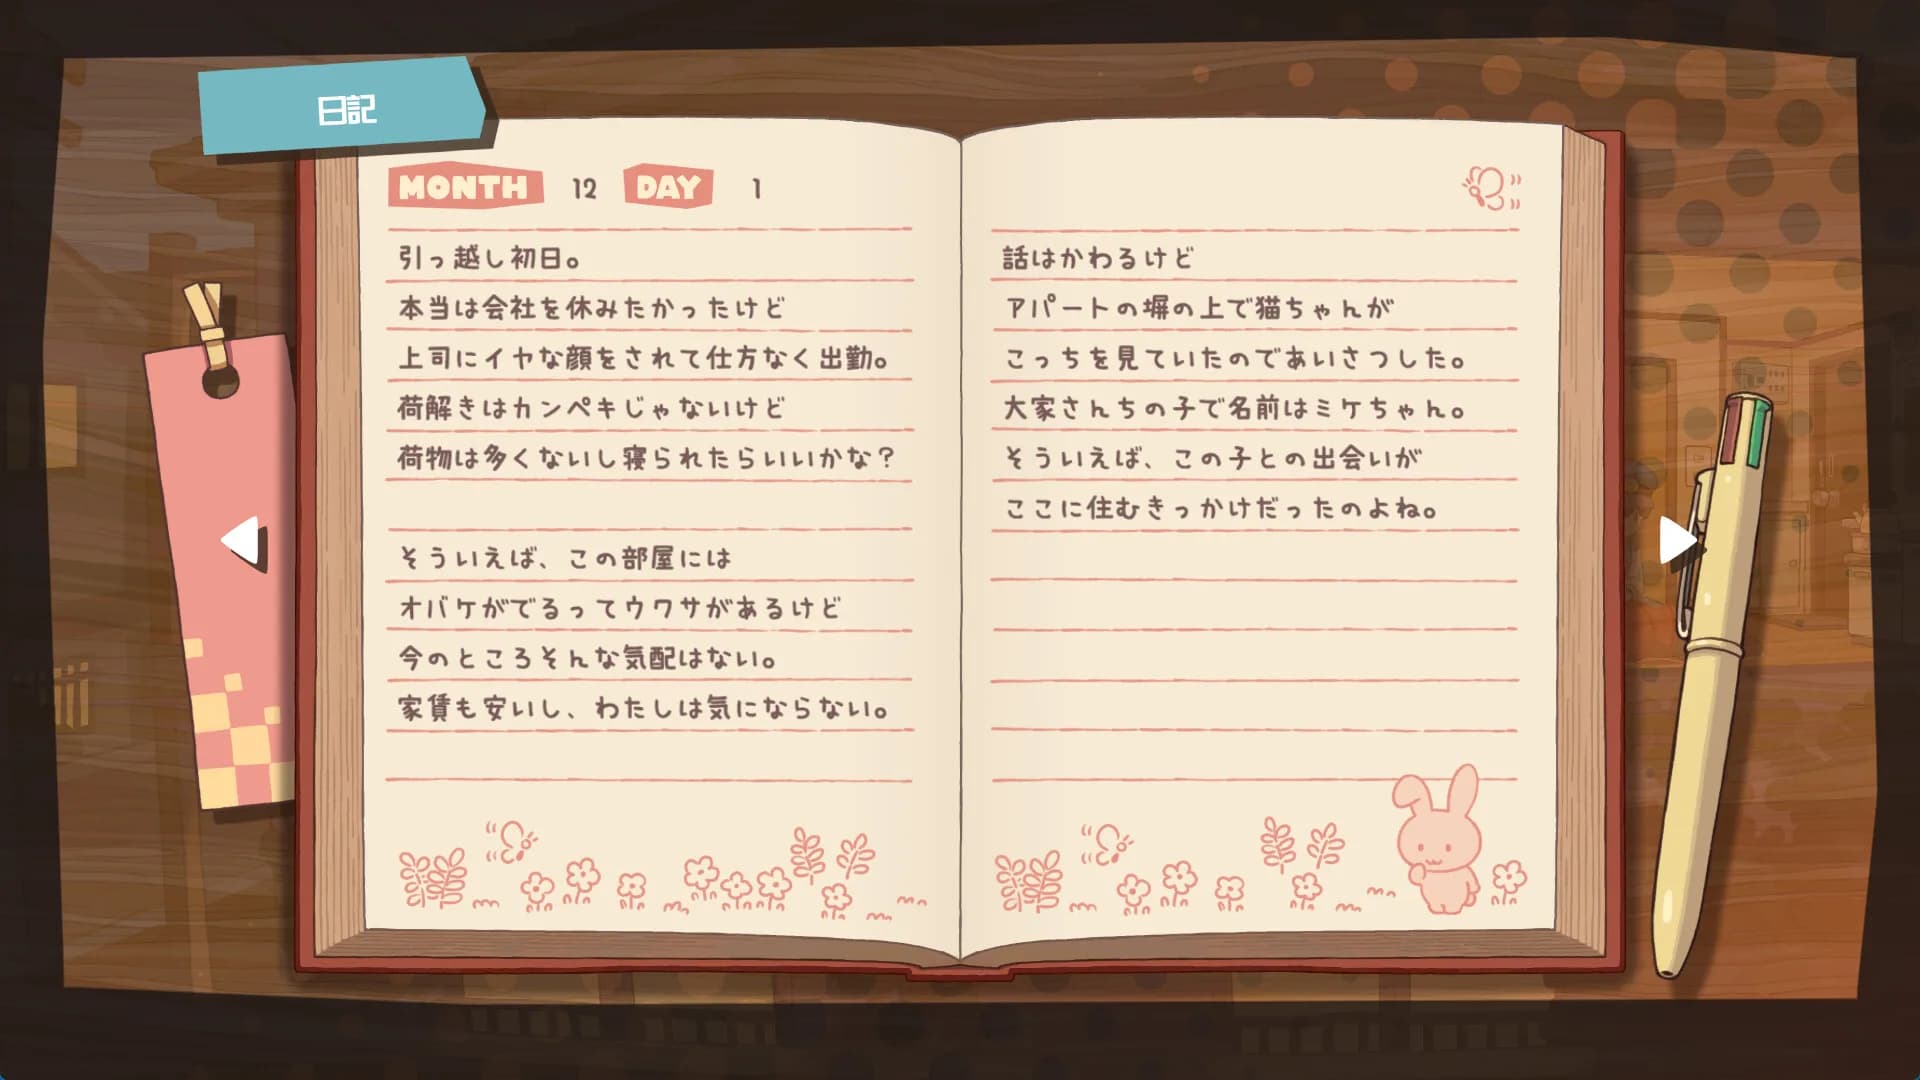 日記
MONTH 12 DAY 1
引っ越し初日。
本当は会社を休みたかったけど
上司にイヤな顔をされて仕方なく出勤。
荷解きはカンペキじゃないけど
荷物は多くないし寝られたらいいかな？
そういえば、この部屋には
オバケがでるってウワサがあるけど
今のところそんな気配はない。
家賃も安いし、わたしは気にならない。
話はかわるけど
アパートの塀の上で猫ちゃんが
こっちを見ていたのであいさつした。
大家さんちの子で名前はミケちゃん。
そういえば、この子との出会いが
ここに住むきっかけだったのよね。